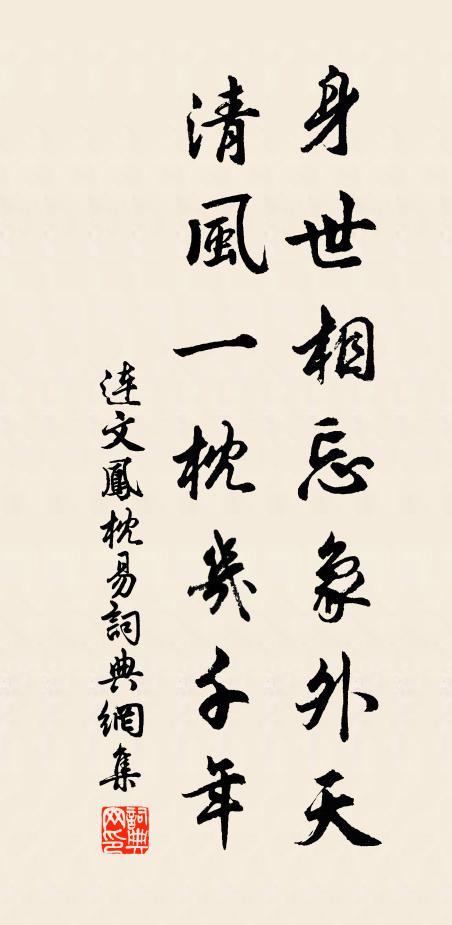 身世相忘象外天
清風一枕幾千年
連文鳳枕易詞典網集
詞典網印